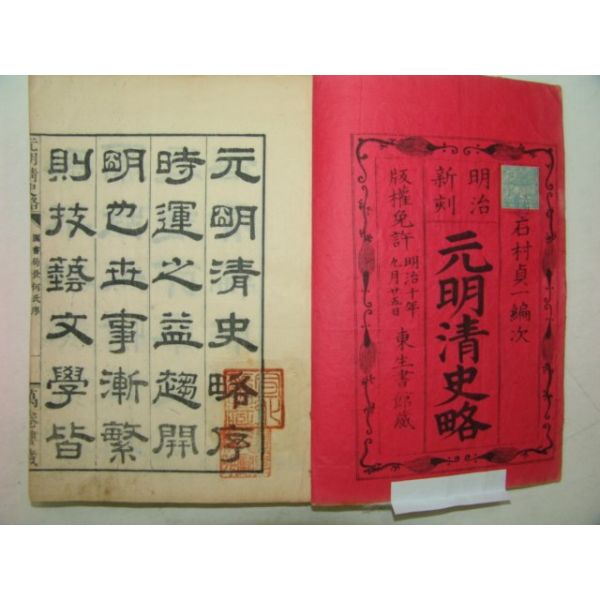 石村貞一編次
明治
新刻
元明清史略
版權免許
明治十年
月廿五日
東生書
藏
元明清史略序
時運之益趨開
明也世事漸繁
則技藝文學皆
元明清史略
圖書局長何氏序